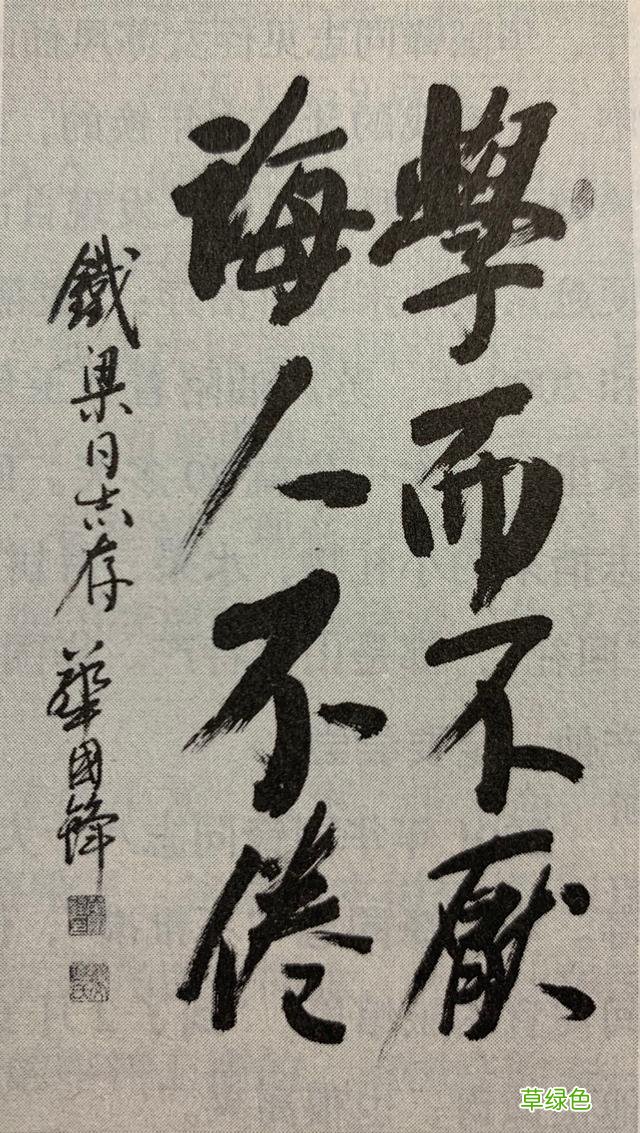 學而不厭
誨人不倦
鐵梁同志存 華國鋒
草绿色